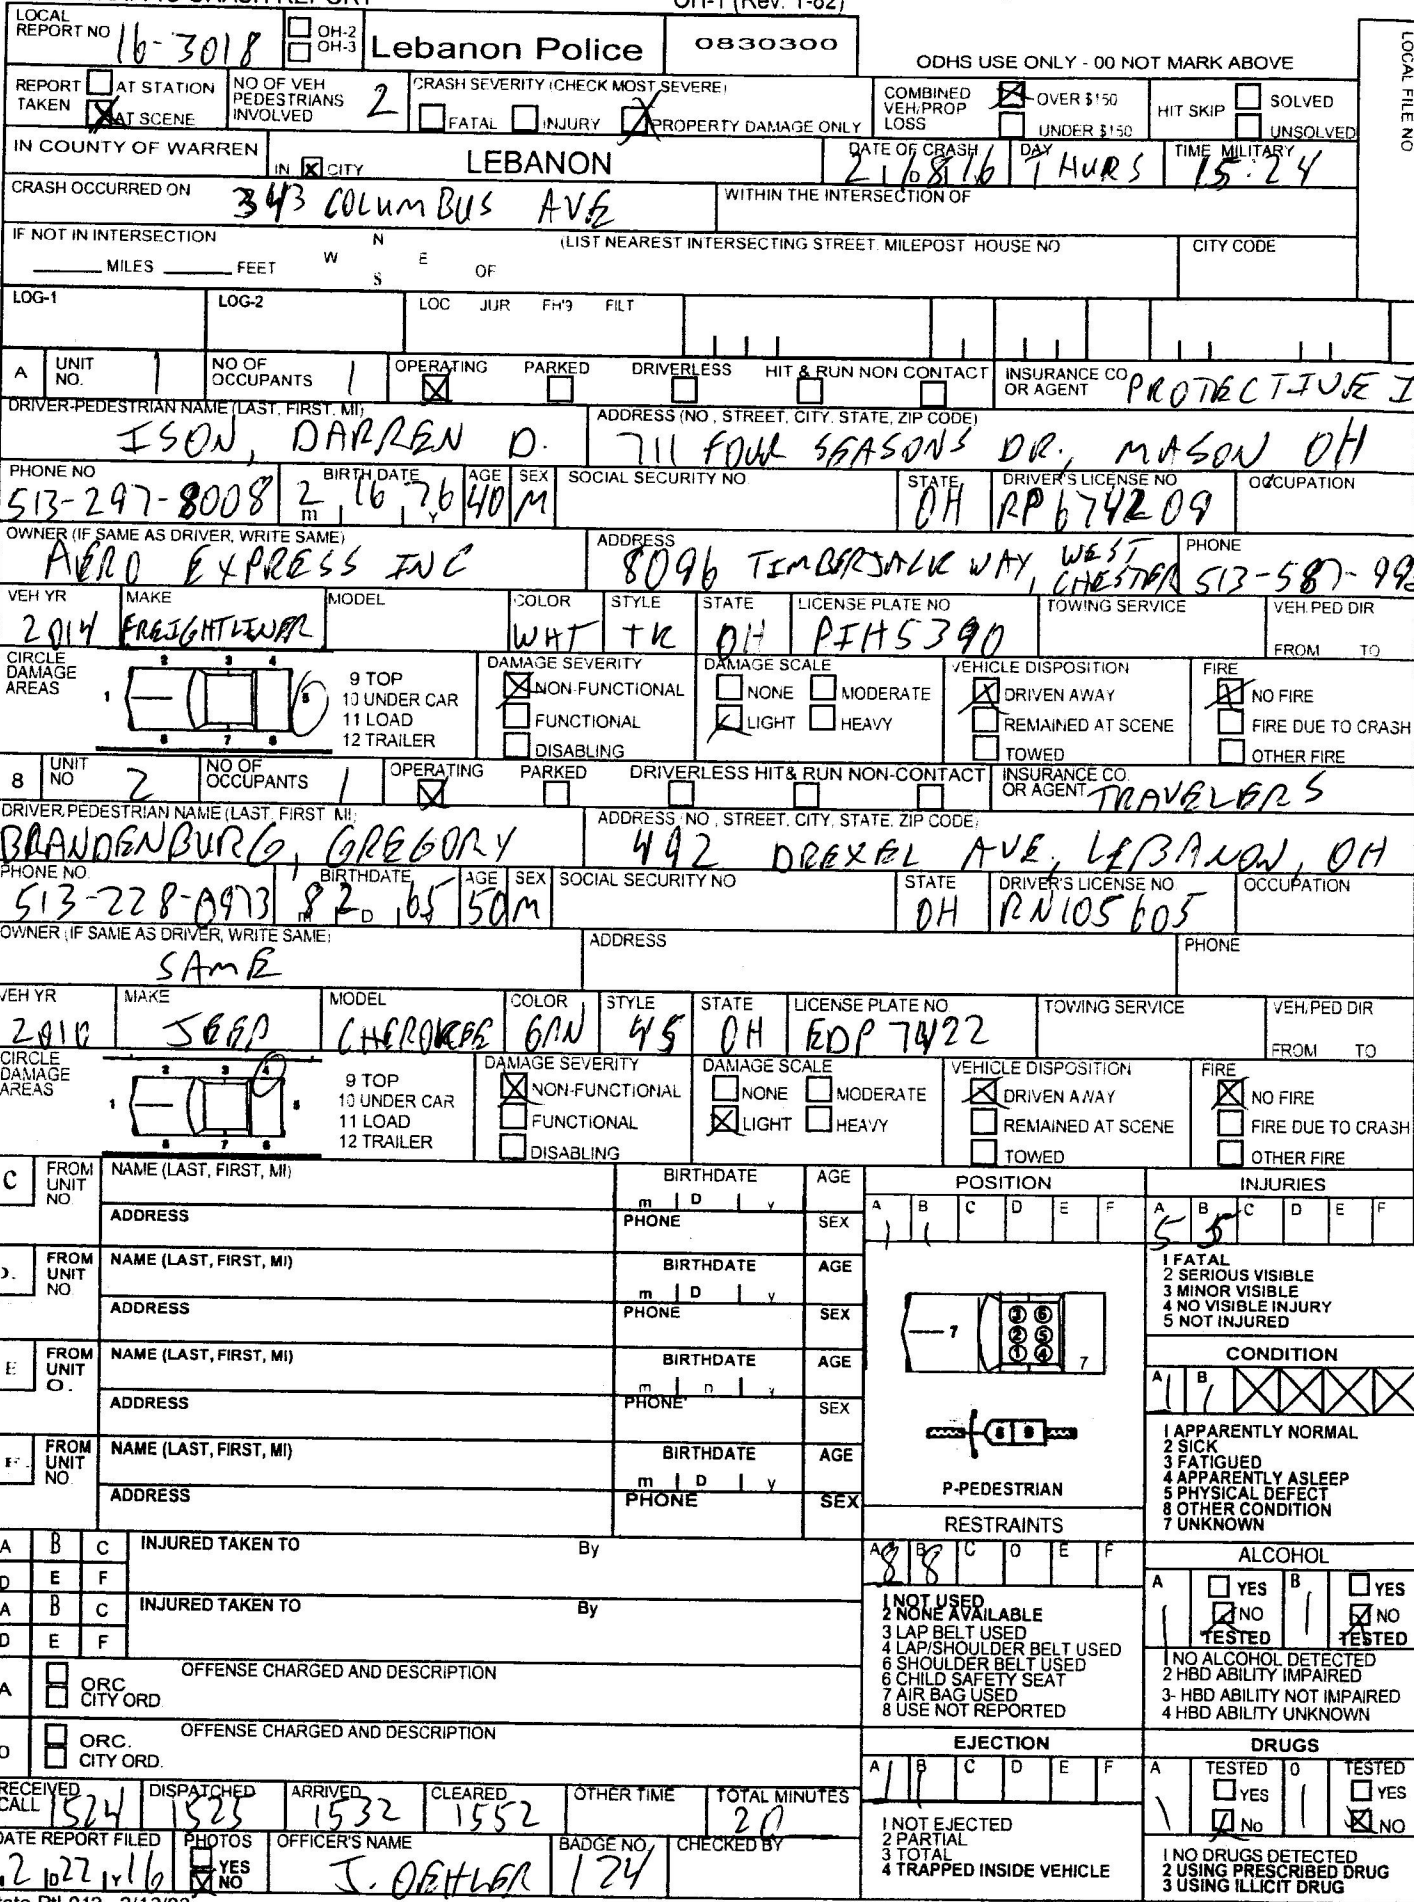 OH-1 (Rev. 1-82)
LOCAL REPORT NO 16-3018 OH-2 OH-3 Lebanon Police 0830300
ODHS USE ONLY - 00 NOT MARK ABOVE
LOCAL FILE NO
REPORT TAKEN AT STATION AT SCENE NO OF VEH PEDESTRIANS INVOLVED 2 CRASH SEVERITY (CHECK MOST SEVERE) FATAL INJURY PROPERTY DAMAGE ONLY COMBINED VEH/PROP LOSS OVER $150 UNDER $150 HIT SKIP SOLVED UNSOLVED
IN COUNTY OF WARREN IN X CITY LEBANON DATE OF CRASH 2 18 16 DAY THURS TIME MILITARY 15:24
CRASH OCCURRED ON 343 COLUMBUS AVE WITHIN THE INTERSECTION OF
IF NOT IN INTERSECTION MILES FEET N W E S OF (LIST NEAREST INTERSECTING STREET. MILEPOST HOUSE NO CITY CODE
LOG-1 LOG-2 LOC JUR FH'9 FILT
A UNIT NO. 1 NO OF OCCUPANTS 1 OPERATING PARKED DRIVERLESS HIT & RUN NON CONTACT INSURANCE CO OR AGENT PROTECTIVE I
DRIVER-PEDESTRIAN NAME (LAST, FIRST, MI) ISON, DARREN D. ADDRESS (NO, STREET, CITY, STATE, ZIP CODE) 711 FOUR SEASONS DR., MASON OH
PHONE NO 513-297-8008 BIRTH DATE 2 16 76 m Y AGE 40 SEX M SOCIAL SECURITY NO. STATE OH DRIVER'S LICENSE NO RP674209 OCCUPATION
OWNER (IF SAME AS DRIVER, WRITE SAME) AERO EXPRESS INC ADDRESS 8096 TIMBERJACK WAY, WEST CHESTER PHONE 513-587-99
VEH YR 2014 MAKE FREIGHTLINER MODEL COLOR WHT STYLE TK STATE OH LICENSE PLATE NO PIH5390 TOWING SERVICE VEH. PED DIR FROM TO
CIRCLE DAMAGE AREAS 1 2 3 4 5 6 7 8 9 TOP 10 UNDER CAR 11 LOAD 12 TRAILER DAMAGE SEVERITY NON-FUNCTIONAL FUNCTIONAL DISABLING DAMAGE SCALE NONE MODERATE LIGHT HEAVY VEHICLE DISPOSITION DRIVEN AWAY REMAINED AT SCENE TOWED FIRE NO FIRE FIRE DUE TO CRASH OTHER FIRE
8 UNIT NO 2 NO OF OCCUPANTS 1 OPERATING PARKED DRIVERLESS HIT & RUN NON-CONTACT INSURANCE CO. OR AGENT TRAVELERS
DRIVER, PEDESTRIAN NAME (LAST, FIRST MI) BRANDENBURG, GREGORY ADDRESS (NO, STREET, CITY, STATE, ZIP CODE) 492 DREXEL AVE, LEBANON, OH
PHONE NO. 513-228-0973 BIRTHDATE 8 2 65 m D AGE 50 SEX M SOCIAL SECURITY NO STATE OH DRIVER'S LICENSE NO RN105605 OCCUPATION
OWNER (IF SAME AS DRIVER, WRITE SAME) SAME ADDRESS PHONE
VEH YR 2010 MAKE JEEP MODEL CHEROKEE COLOR GRN STYLE 4S STATE OH LICENSE PLATE NO EDP7422 TOWING SERVICE VEH. PED DIR FROM TO
CIRCLE DAMAGE AREAS 1 2 3 4 5 6 7 8 9 TOP 10 UNDER CAR 11 LOAD 12 TRAILER DAMAGE SEVERITY NON-FUNCTIONAL FUNCTIONAL DISABLING DAMAGE SCALE NONE MODERATE LIGHT HEAVY VEHICLE DISPOSITION DRIVEN AWAY REMAINED AT SCENE TOWED FIRE NO FIRE FIRE DUE TO CRASH OTHER FIRE
C FROM UNIT NO. NAME (LAST, FIRST, MI) BIRTHDATE m D y AGE
ADDRESS PHONE SEX
D. FROM UNIT NO. NAME (LAST, FIRST, MI) BIRTHDATE m D y AGE
ADDRESS PHONE SEX
E FROM UNIT O. NAME (LAST, FIRST, MI) BIRTHDATE m D y AGE
ADDRESS PHONE SEX
F FROM UNIT NO. NAME (LAST, FIRST, MI) BIRTHDATE m D y AGE
ADDRESS PHONE SEX
POSITION
A 1 B 1 C D E F
7 3 6 2 5 1 4 7
8 9
P-PEDESTRIAN
INJURIES
A 5 B 5 C D E F
1 FATAL
2 SERIOUS VISIBLE
3 MINOR VISIBLE
4 NO VISIBLE INJURY
5 NOT INJURED
CONDITION
A 1 B 1
1 APPARENTLY NORMAL
2 SICK
3 FATIGUED
4 APPARENTLY ASLEEP
5 PHYSICAL DEFECT
8 OTHER CONDITION
7 UNKNOWN
A B C INJURED TAKEN TO By
D E F
A B C INJURED TAKEN TO By
D E F
A ORC CITY ORD. OFFENSE CHARGED AND DESCRIPTION
O ORC. CITY ORD. OFFENSE CHARGED AND DESCRIPTION
RESTRAINTS
A 8 B 8 C O E F
1 NOT USED
2 NONE AVAILABLE
3 LAP BELT USED
4 LAP/SHOULDER BELT USED
6 SHOULDER BELT USED
6 CHILD SAFETY SEAT
7 AIR BAG USED
8 USE NOT REPORTED
ALCOHOL
A 1 YES NO TESTED B 1 YES NO TESTED
1 NO ALCOHOL DETECTED
2 HBD ABILITY IMPAIRED
3- HBD ABILITY NOT IMPAIRED
4 HBD ABILITY UNKNOWN
EJECTION
A 1 B 1 C D E F
1 NOT EJECTED
2 PARTIAL
3 TOTAL
4 TRAPPED INSIDE VEHICLE
DRUGS
A 1 TESTED YES No O 1 TESTED YES NO
1 NO DRUGS DETECTED
2 USING PRESCRIBED DRUG
3 USING ILLICIT DRUG
RECEIVED CALL 1524 DISPATCHED 1525 ARRIVED 1532 CLEARED 1552 OTHER TIME TOTAL MINUTES 20
DATE REPORT FILED 2 D 22 Y 16 PHOTOS YES NO OFFICER'S NAME J. OEHLER BADGE NO. 124 CHECKED BY